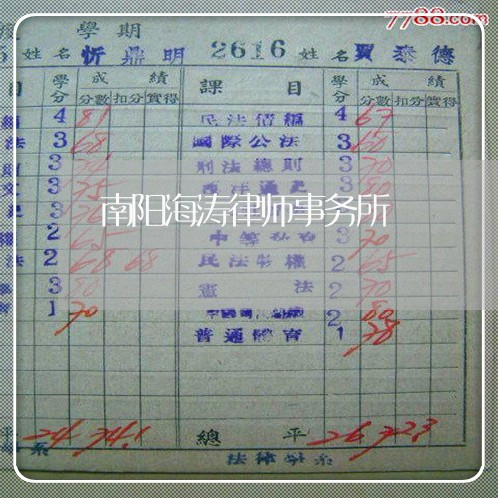 7788.com
學期
姓名 忻鼎明 2616 姓名 賈泰德
目 學分 成績 課目 學分 成績
分數 扣分 實得 分數 扣分 實得
4 81 民法債編 4 67
法 3 68 國際公法 3 60
3 刑法總則 3 70
3 75 3 80
南阳海涛律师事务所
2 65 3 70
法 2 68 68 民法物權 2 65
3 80 憲法 2 70
1 70 2 80
普通體育 1 78
平 24 74.1 總平 26 72.3
系 法律學系